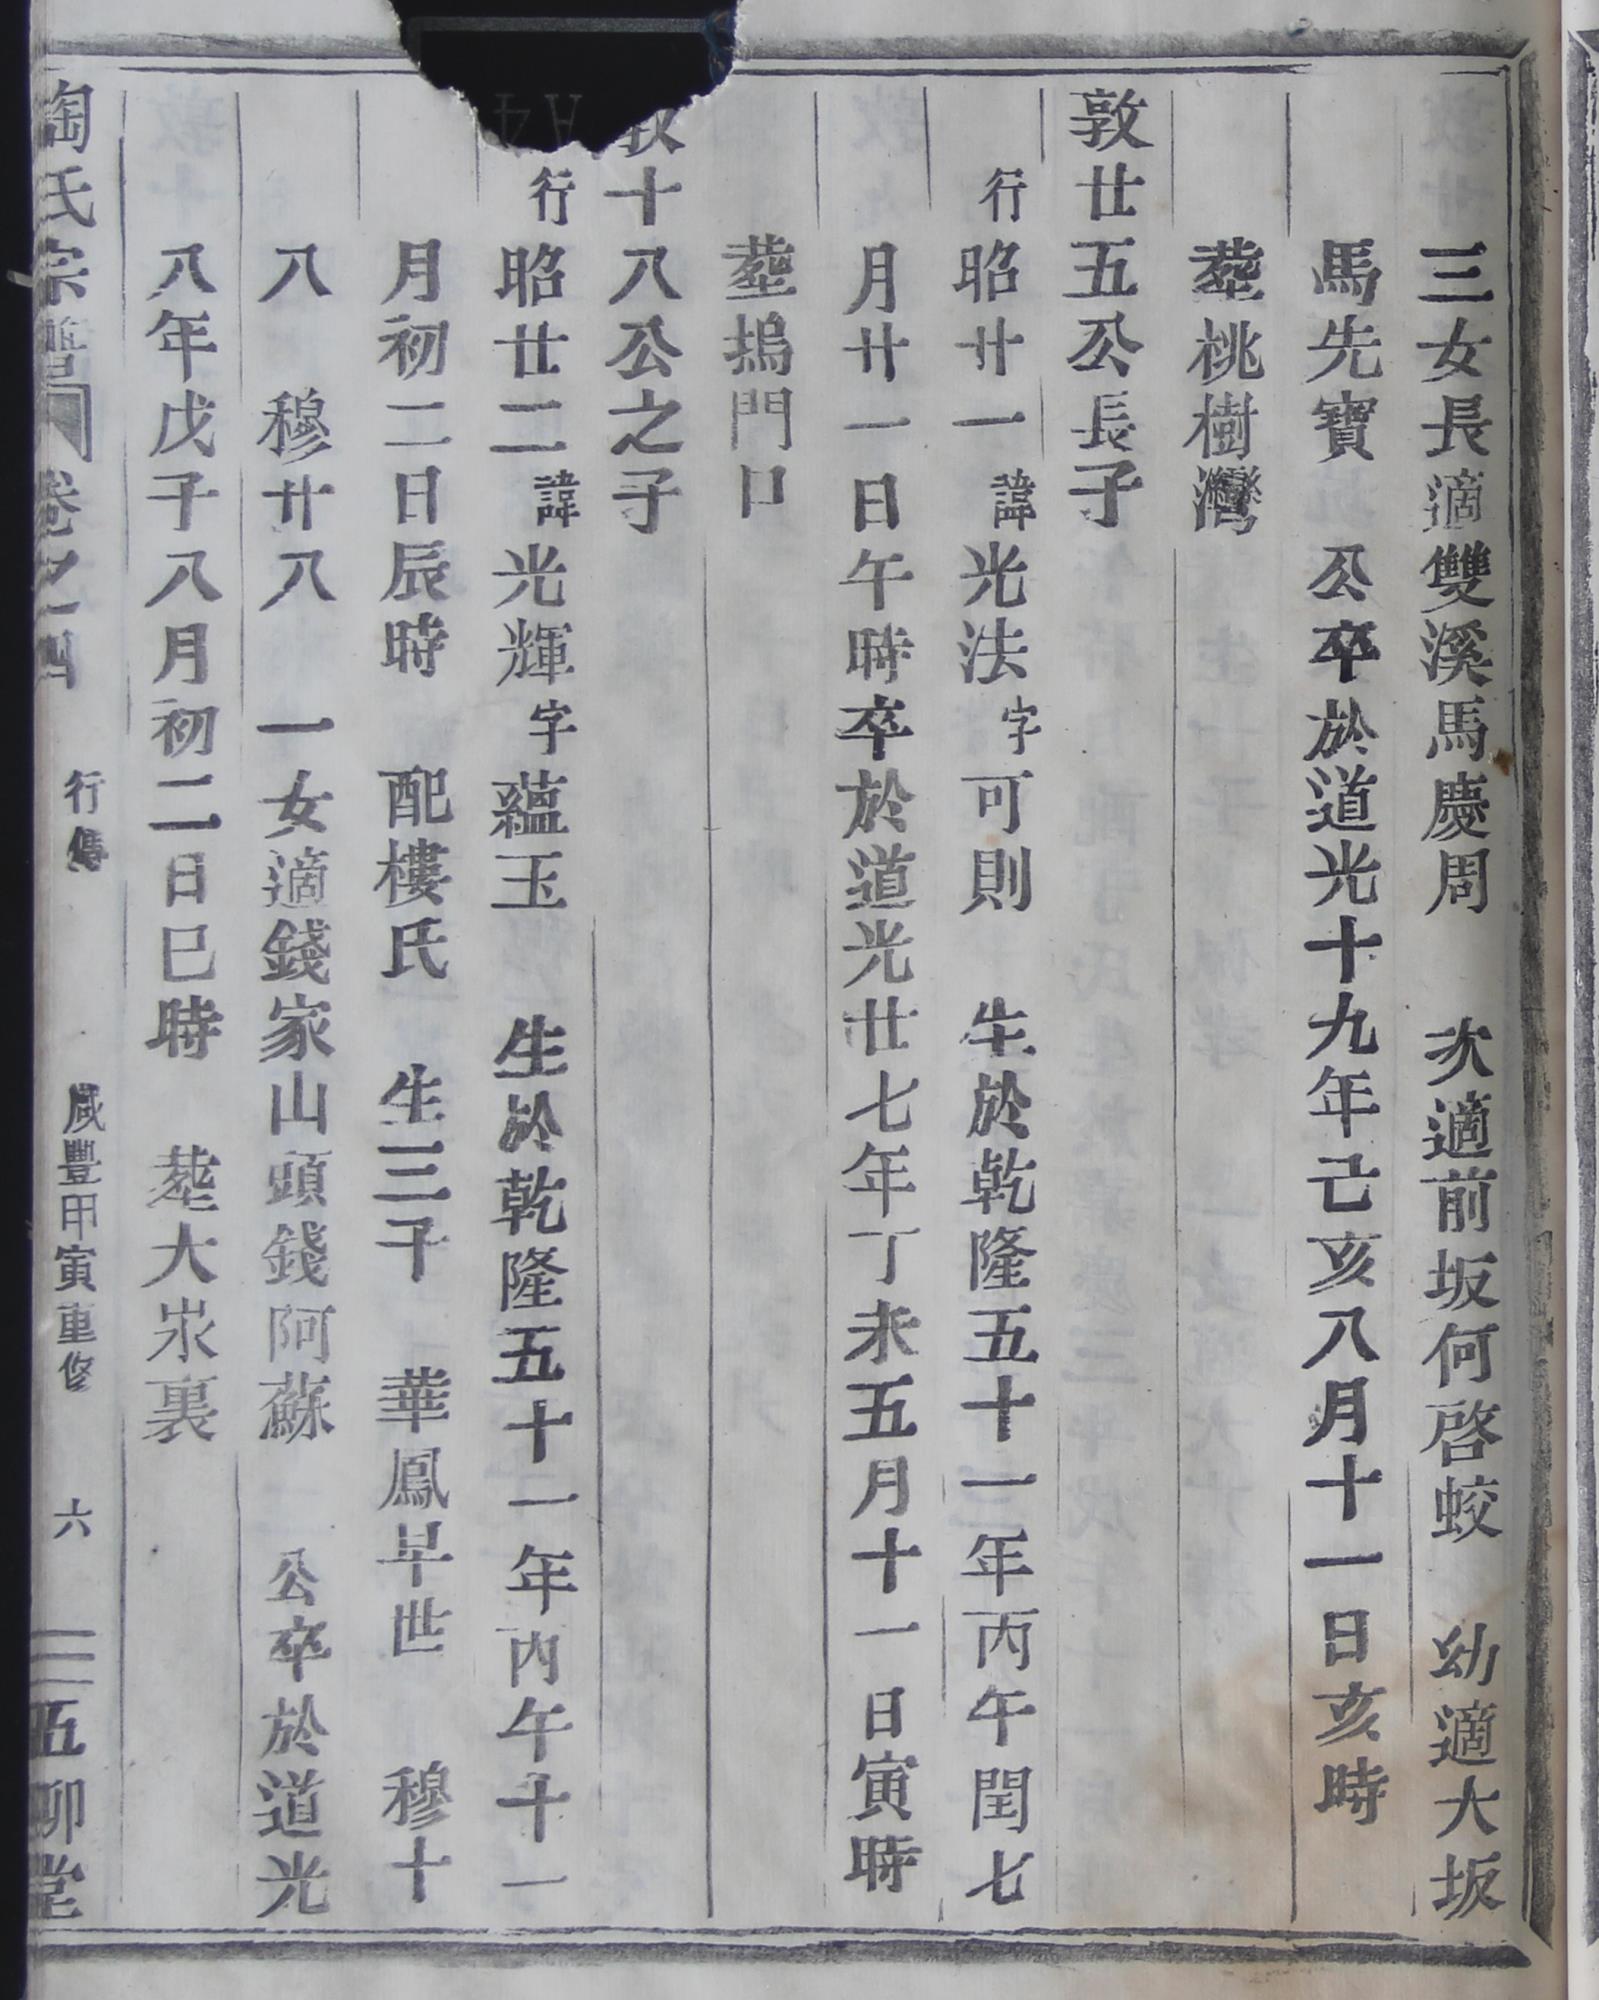 三女長適雙溪馬慶周　次適前坂何啓蛟　幼適大坂
馬先寶　公卒於道光十九年己亥八月十一日亥時
塟桃樹灣
敦廿五公長子
行昭廿一諱光法字可則　生於乾隆五十一年丙午閏七
月廿一日午時卒於道光廿七年丁未五月十一日寅時
塟塢門口
敦十八公之子
行昭廿二諱光輝字蘊玉　生於乾隆五十一年丙午十一
月初二日辰時　配樓氏　生三子　華鳳早世　穆十
八　穆廿八　一女適錢家山頭錢阿蘇　公卒於道光
八年戊子八月初二日巳時　塟大裏
陶氏宗譜　卷之四　行傳　咸豐甲寅重修　六　五柳堂